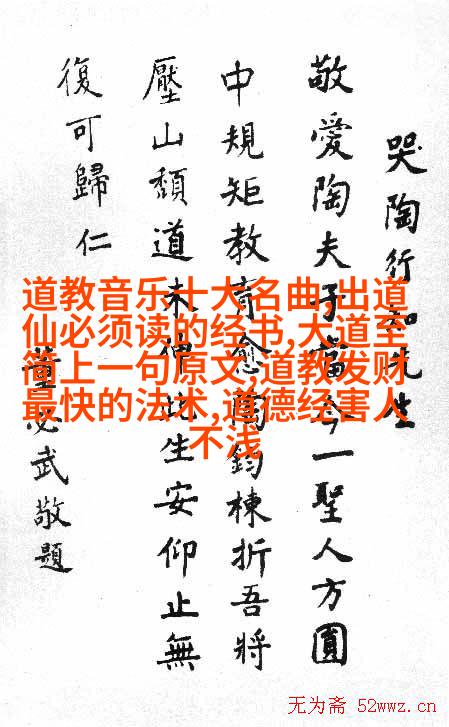 哭陶行知先生
敬愛陶夫子當今一聖人方圓
中規矩教育愈陶鈞棟折吾將
壓山頹道未伸此生安仰止無
復可歸仁
董必武敬題
道教音乐十大名曲,出道
仙必须读的经书,大道至
简上一句原文,道教发财
最快的法术,道德经害人
不浅
无为斋 52wwz.cn